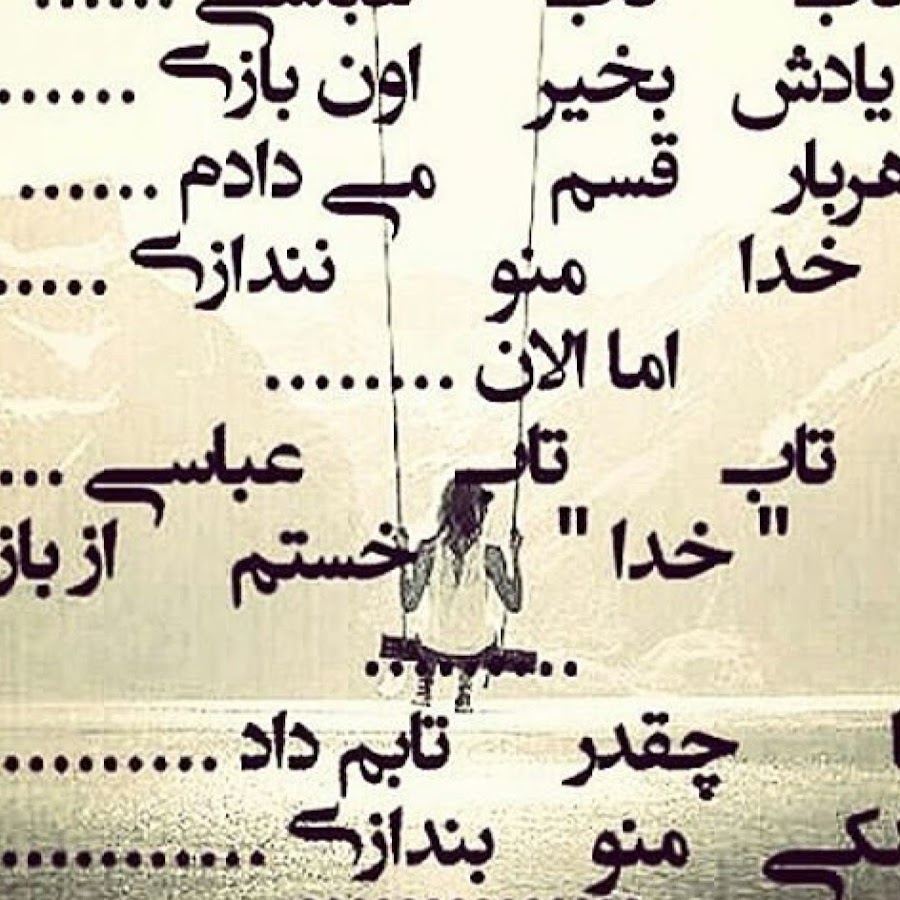 تاب تاب عباسی ......
یادش بخیر اون بازی ......
هربار قسم می دادم ......
خدا منو نندازی .....
اما الان ........
تاب تاب عباسی ...
" خدا " خستم از باز
..........
چقدر تابم داد .........
منو بندازی ............